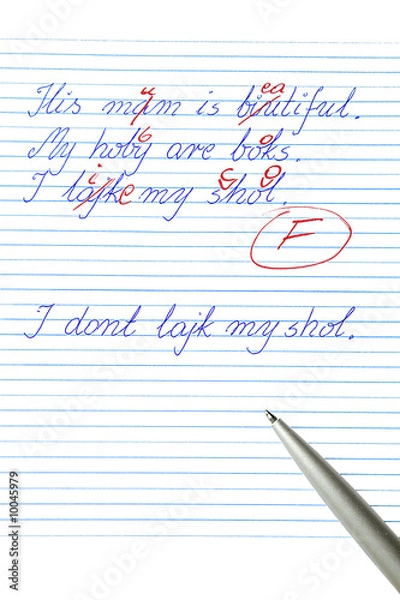 His mam is biutiful.
My hoby are boks.
I lajk my shol.
F
I dont lajk my shol.